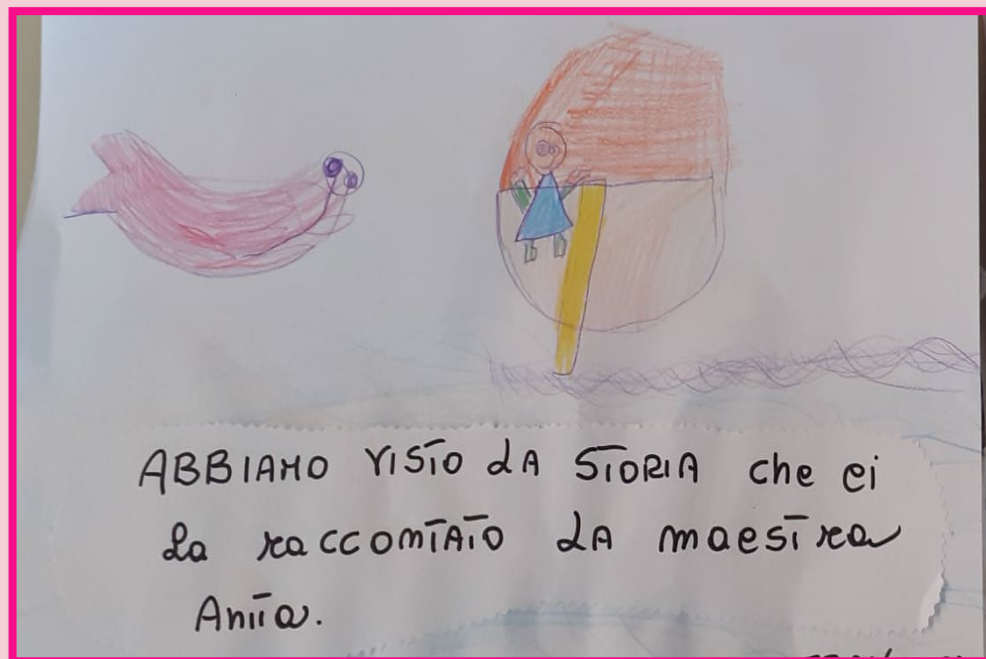 ABBIAMO VISTO LA STORIA che ci
ha raccontato LA maestra
Anita.